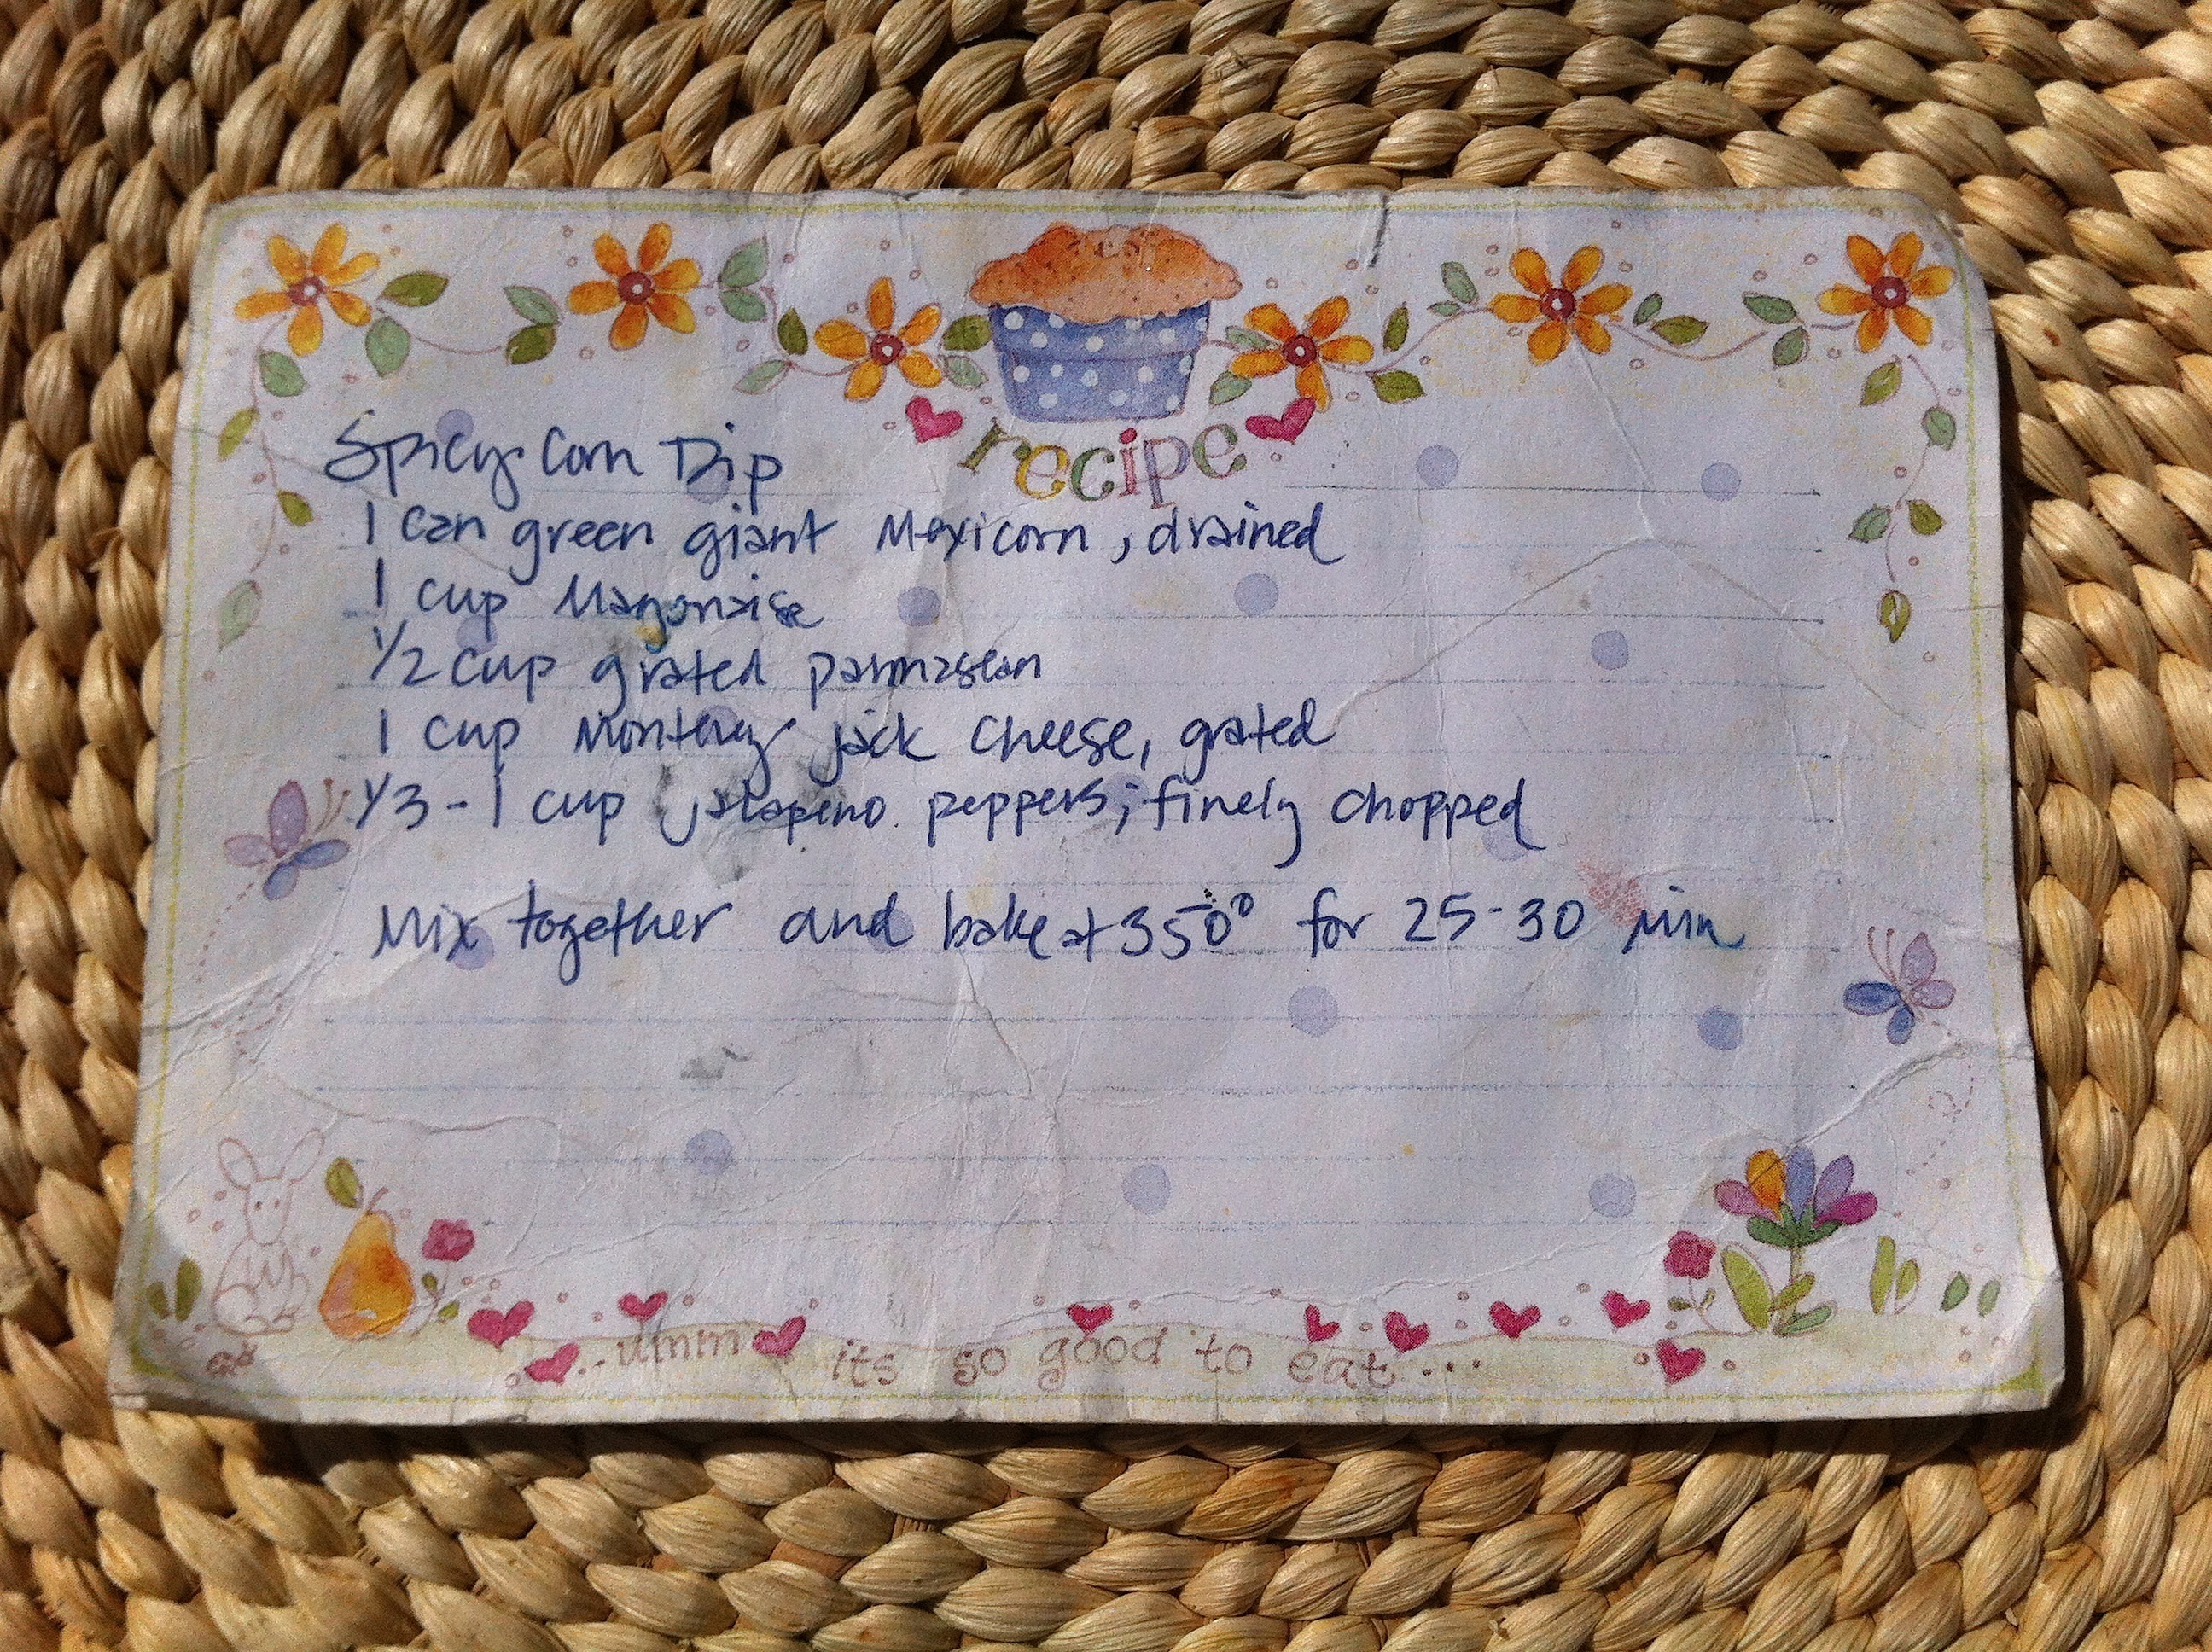 recipe
Spicy Corn Dip
1 can green giant Mexicorn, drained
1 cup Mayonaise
1/2 cup grated parmasean
1 cup Monterey jack cheese, grated
1/3 - 1 cup jalapeno peppers, finely chopped
Mix together and bake at 350° for 25-30 min
..umm its so good to eat...